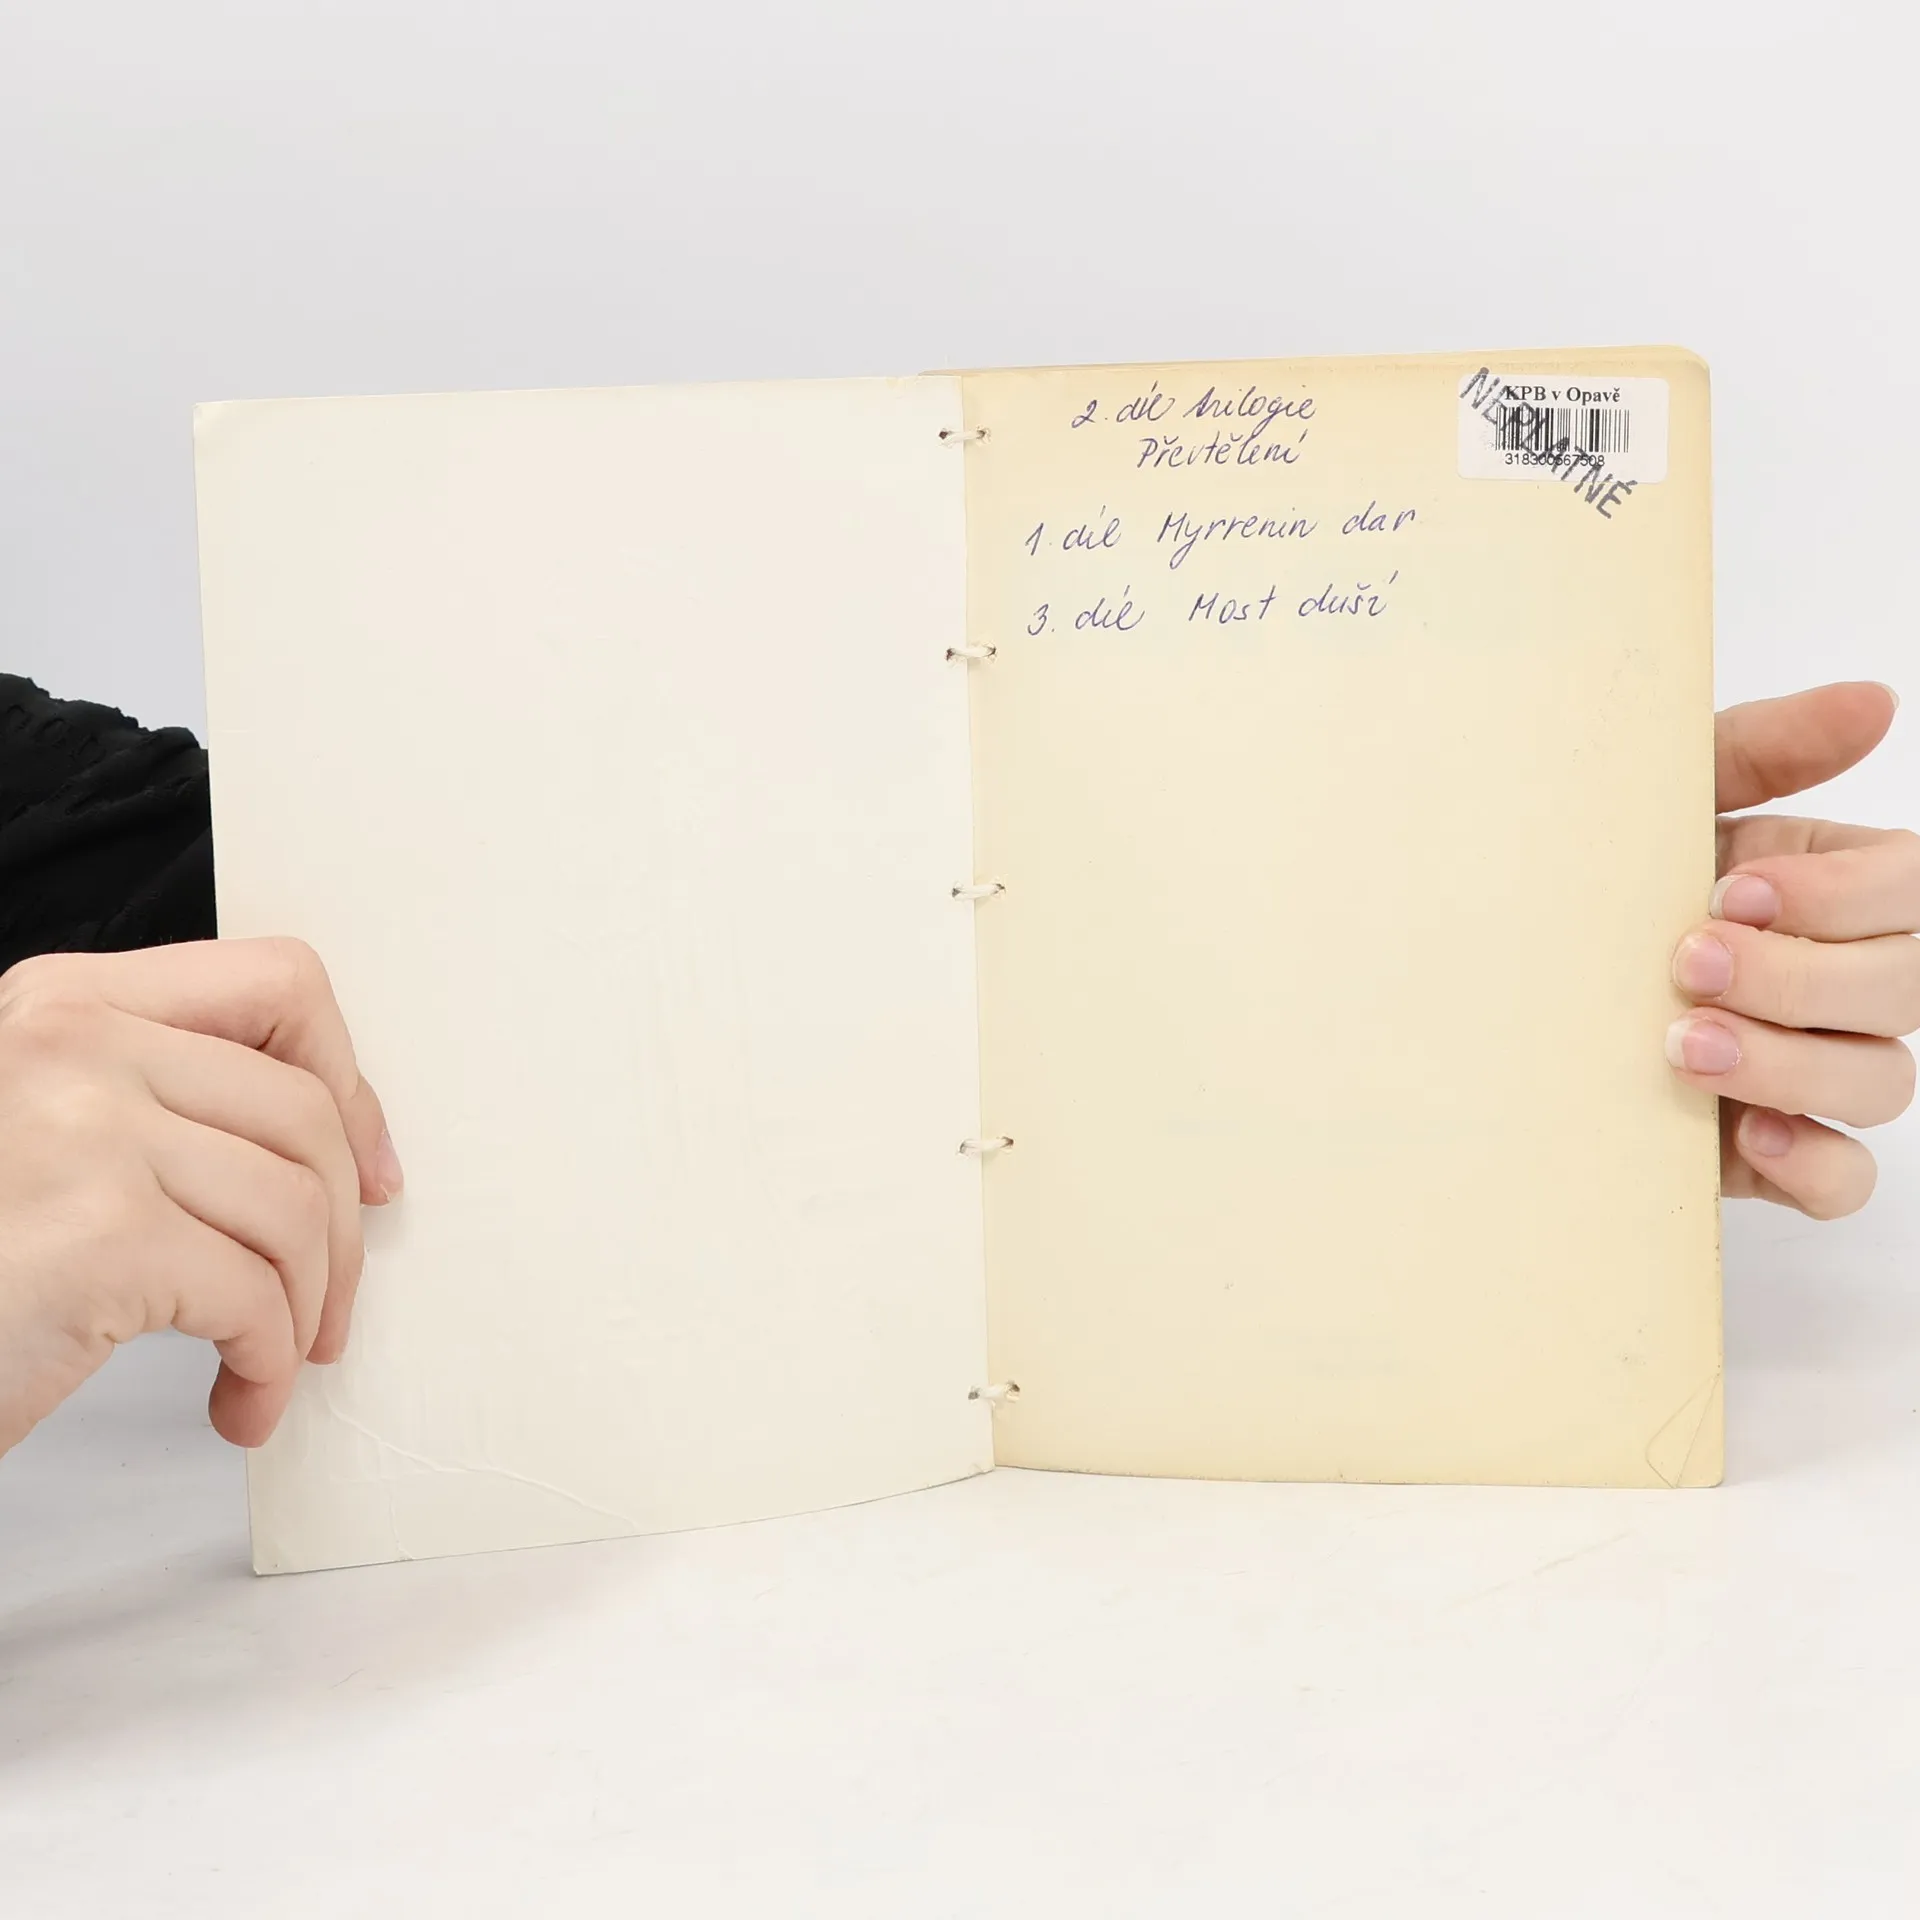 2. díl trilogie
Převtělení
1. díl Myrrenin dar
3. díl Most duší
KPB v Opavě
318300567508
NEPLATNÉ